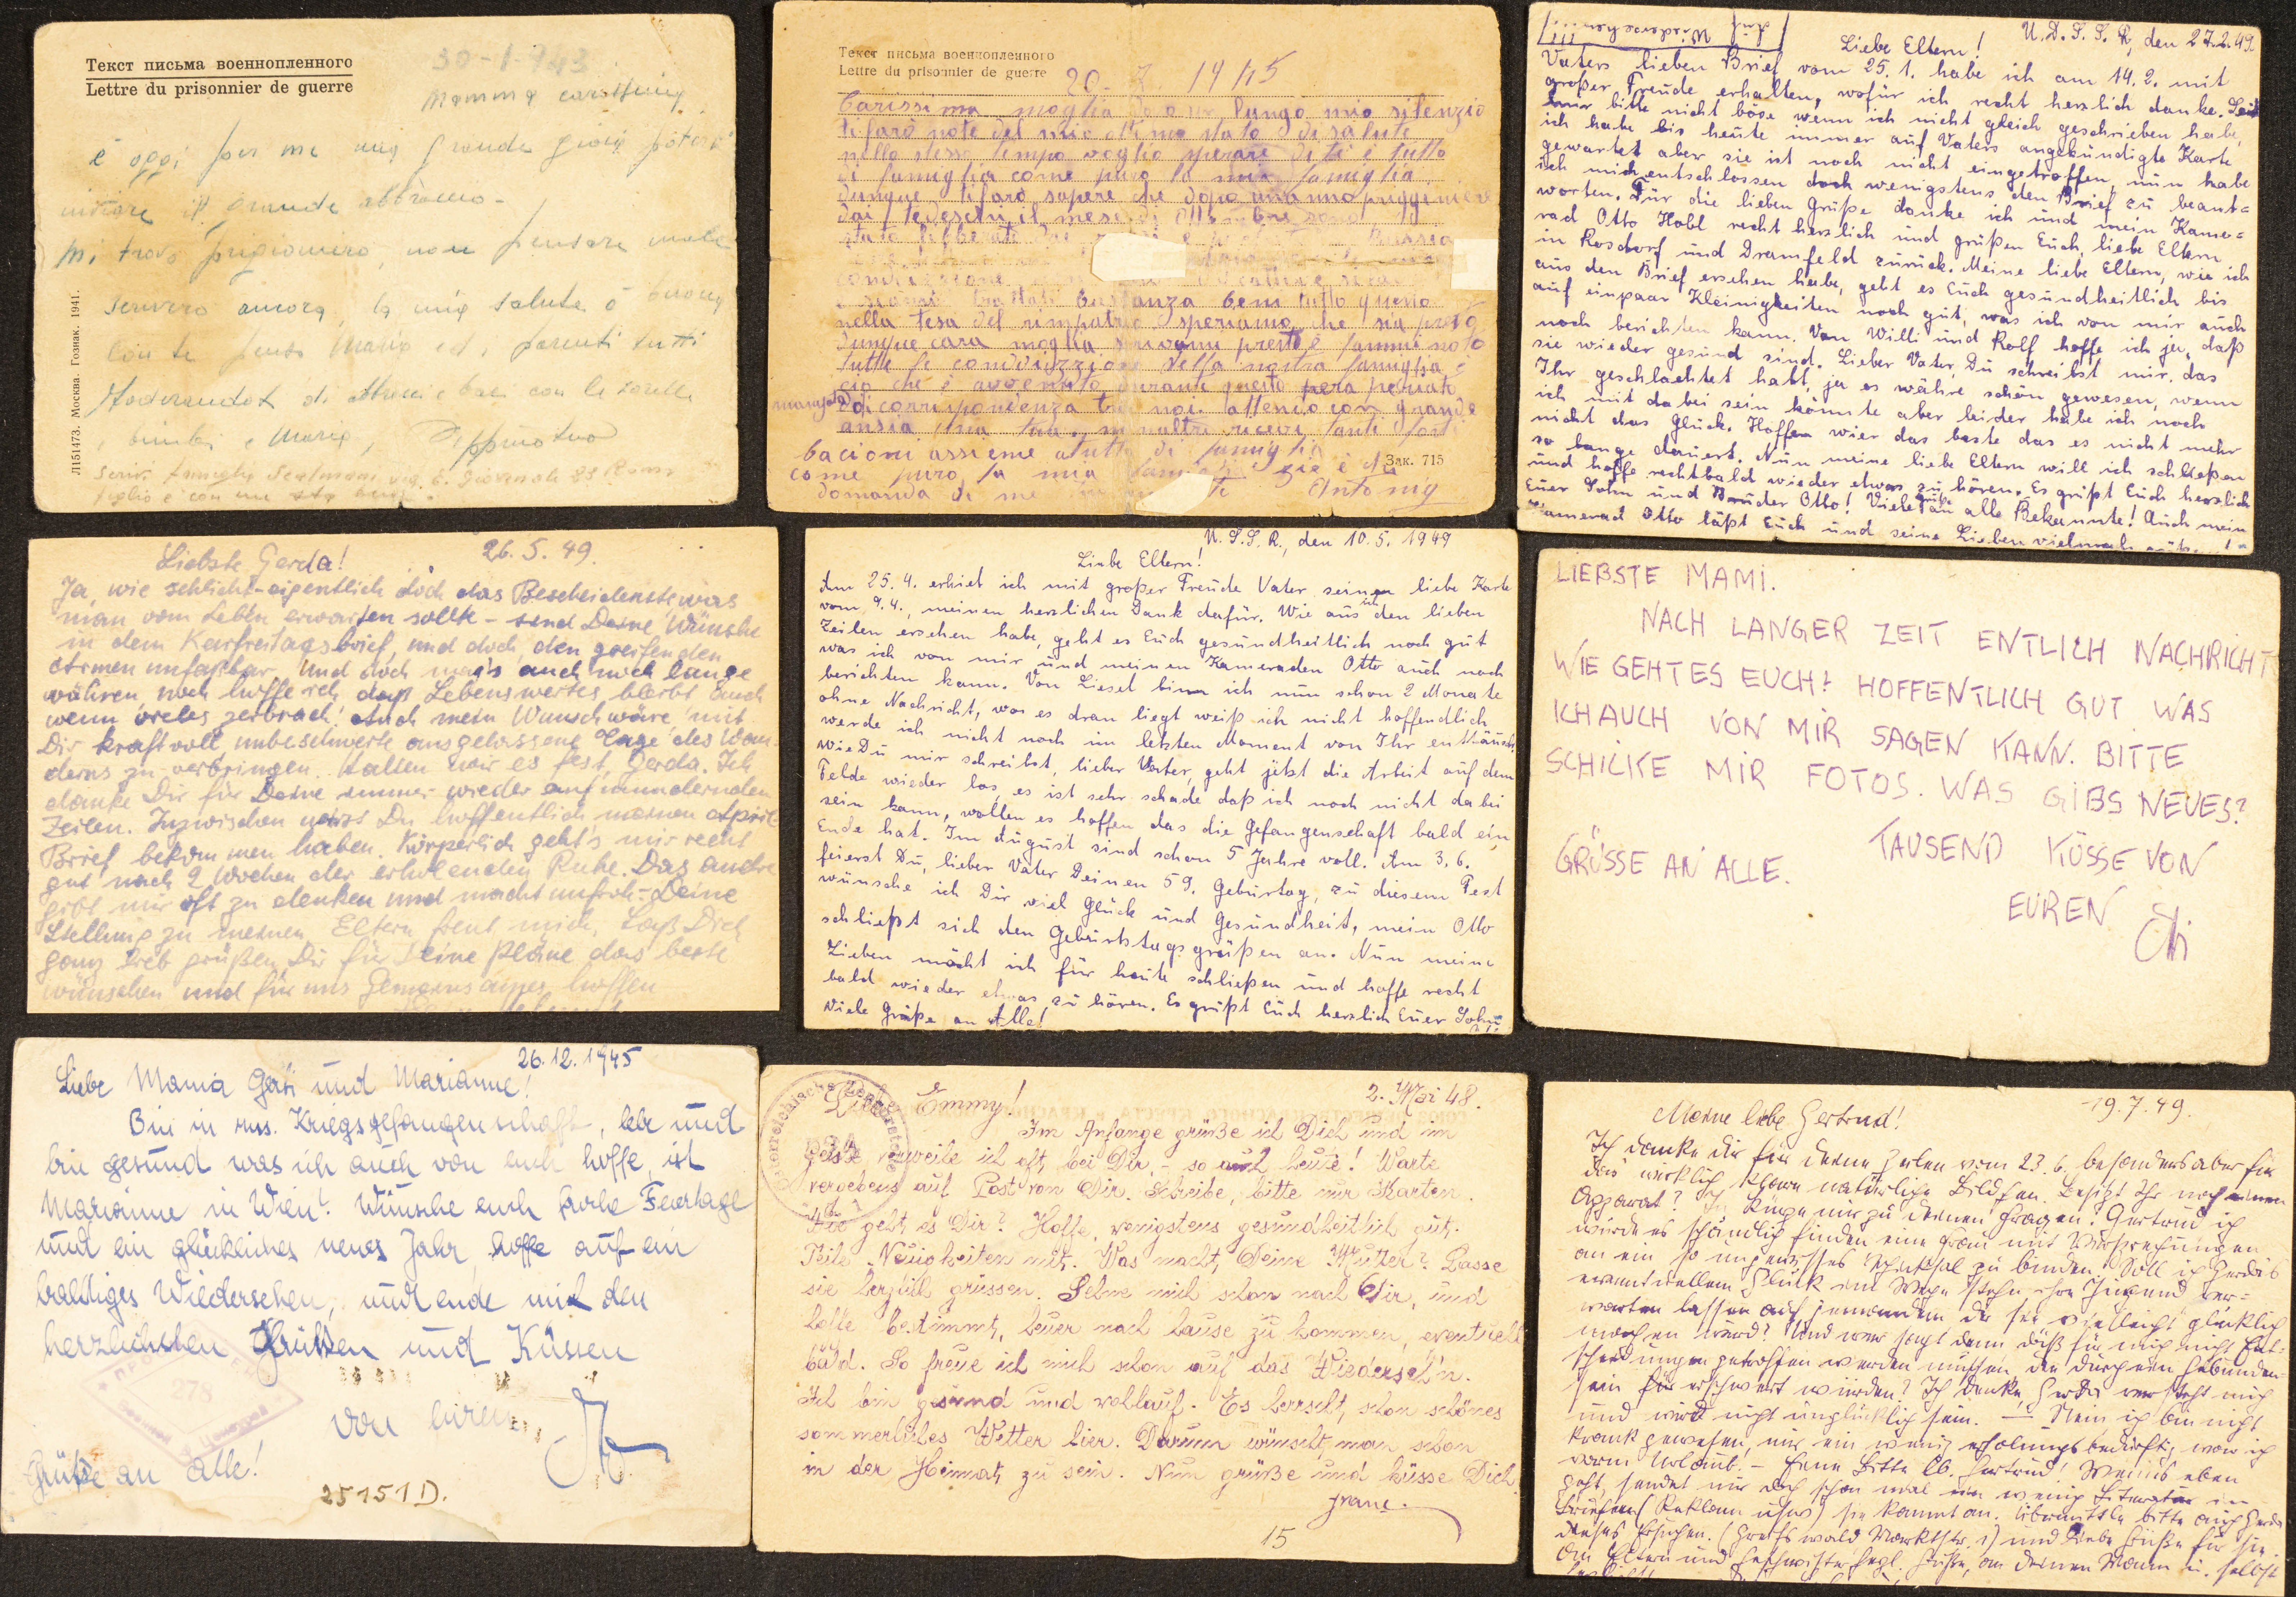 Текст письма военнопленного
Lettre du prisonnier de guerre
30-1-943
Mamma carissima
è oggi per me una grande gioia poterti
inviare il grande abbraccio -
Mi trovo prigioniero, non pensare male
scriverò ancora, la mia salute è buona
Con te penso Maria ed i parenti tutti
di con le sorelle
, bimbi e Maria, Peppino tuo
Scrivi famiglia
figlio è con me sta bene.
Л151473. Москва. Гознак. 1941.
Текст письма военнопленного
Lettre du prisonnier de guerre
20- 1945
Carissima moglia dopo un lungo mio silenzio
ti farò note del mio ottimo stato di salute
nello stesso tempo voglio sperare di te e tutto
di famiglia come puro la mia famiglia
dunque ti farò sapere che dopo un anno priggioniero
dai tedeschi il mese di
stato libberato dai Russia
condizzione
trattati bastanza bene tutto questo
nella tesa del rimpatrio speriamo che sia presto
dunque cara moglia scrivami presto e fammi noto
tutte le condizzione della nostra famiglia e
ciò che è avvenuto durante questo
mangata di corrispondenza tra noi. attendo con grande
ansia una tua. ricevi tanti forti
bacioni assieme a tutti di famiglia
come puro la mia famiglia
Зак. 715
domanda di me Antonio
U.d.S.S.R, den 27.2.49
Liebe Eltern!
Vaters lieben Brief vom 25.1. habe ich am 14.2. mit
großer Freude erhalten, wofür ich recht herzlich danke. Seit
mir bitte nicht böse wenn ich nicht gleich geschrieben habe,
ich habe bis heute immer auf Vaters angekündigte Karte
gewartet aber sie ist noch nicht eingetroffen, nun habe
ich mich entschlossen doch wenigstens den Brief zu beant=
worten. Für die lieben Grüße danke ich und mein Kame=
rad Otto Hobl recht herzlich und grüßen Euch, liebe Eltern
in Rosdorf und Dramfeld zurück. Meine liebe Eltern, wie ich
aus den Brief ersehen habe, geht es Euch gesundheitlich bis
auf einpaar Kleinigkeiten noch gut, was ich von mir auch
noch berichten kann. Von Willi und Rolf hoffe ich ja, daß
sie wieder gesund sind. Lieber Vater, Du schreibst mir, das
Ihr geschlachtet habt, ja es währe schön gewesen, wenn
ich mit dabei sein könnte aber leider habe ich noch
nicht das Glück. Hoffen wier das beste das es nicht mehr
so lange dauert. Nun meine liebe Eltern will ich schließen
und hoffe rechtbald wieder etwas zu hören. Es grüßt Euch herzlich
Euer Sohn und Bruder Otto! Viele Grüße an alle Bekannte! Auch mein
Kamerad Otto läßt Euch und seine Lieben vielmals
Liebste Gerda! 26.5.49.
Ja, wie schlicht-eigentlich doch das Bescheidenste was
man vom Leben erwarten sollte - sind Deine Wünsche
in dem Karfreitagsbrief, und doch, den greifenden
Armen unfaßbar. Und doch mag's auch noch lange
währen, noch hoffe ich, daß Lebenswertes bleibt auch
wenn vieles zerbrach! Auch mein Wunsch wäre mit
Dir kraftvoll, unbeschwerte ausgelassene Tage des Wan=
derns zu verbringen. Halten wir es fest, Gerda. Ich
danke Dir für Deine immer wieder aufmundernden
Zeilen. Inzwischen wirst Du hoffentlich meinen April
Brief bekommen haben. Körperlich geht's mir recht
gut nach 2 Wochen der erholenden Ruhe. Das andre
gibt mir oft zu denken und macht unfroh. - Deine
Stellung zu meinen Eltern freut mich. Laß Dich
ganz lieb grüßen, Dir für Deine Pläne das beste
wünschen und für uns Gemeinsames hoffen
U.S.S.R., den 10.5.1949
Liebe Eltern!
Am 25.4. erhielt ich mit großer Freude Vater seinen liebe Karte
vom 9.4., meinen herzlichen Dank dafür. Wie aus ich den lieben
Zeilen ersehen habe, geht es Euch gesundheitlich noch gut
was ich von mir und meinen Kameraden Otto auch noch
berichten kann. Von Liesel binn ich nun schon 2 Monate
ohne Nachricht, wo es dran liegt weiß ich nicht hoffendlich
werde ich nicht noch im letzten Moment von Ihr enttäuscht
wie Du mir schreibst, lieber Vater, geht jetzt die Arbeit auf dem
Felde wieder los, es ist sehr schade daß ich noch nicht dabei
sein kann, wollen es hoffen das die Gefangenschaft bald ein
Ende hat. Im August sind schon 5 Jahre voll. Am 3.6.
feierst Du, lieber Vater Deinen 59. Geburtag, zu diesem Fest
wünsche ich Dir viel Glück und Gesundheit, mein Otto
schließt sich den Geburtstagsgrüßen an. Nun meine
Lieben möcht ich für heute schließen und hoffe recht
bald wieder etwas zu hören. Es grüßt Euch herzlich Euer Sohn
Viele Grüße an Alle!
LIEBSTE MAMI.
NACH LANGER ZEIT ENTLICH NACHRICHT
WIE GEHT ES EUCH? HOFFENTLICH GUT WAS
ICH AUCH VON MIR SAGEN KANN. BITTE
SCHICKE MIR FOTOS. WAS GIBS NEUES?
GRÜSSE AN ALLE. TAUSEND KÜSSE VON
EUREN
26.12.1945
Liebe Mama Gerti und Marianne!
Bin in rus. Kriegsgefangenschaft, lebe und
bin gesund was ich auch von euch hoffe, ist
Marianne in Wien? Wünsche euch frohe Feiertage
und ein glückliches neues Jahr, hoffe auf ein
baldiges Wiedersehen, und ende mit den
herzlichsten Grüßen und Küssen
278
von euren
Grüße an alle!
25151 D.
Liebe Emmy! 2. Mai 48.
Im Anfange grüße ich Dich und im
Geiste verweile ich oft bei Dir, - so auch heute! Warte
vergebens auf Post von Dir. Schreibe, bitte nur Karten.
Wie geht es Dir? Hoffe, wenigstens gesundheitlich gut.
Teile Neuigkeiten mit. Was macht Deine Mutter? Lasse
sie herzlich grüssen. Sehne mich schon nach Dir, und
hoffe bestimmt, heuer nach hause zu kommen, eventuell
bald. So freue ich mich schon auf das Wiederseh'n.
Ich bin gesund und wohlauf. Es herrscht, schon schönes
sommerliches Wetter hier. Darum wünscht man schon
in der Heimat zu sein. Nun grüße und küsse Dich
Franz.
15
19.7.49.
Meine liebe Gertrud!
Ich danke Dir für Deine Zeilen vom 23.6. besonders aber für
das wirklich schöne natürliche Bildchen. Besitzt Ihr noch einen
Apparat? In Kürze nur zu Deinen Fragen. Gertrud ich
würde es schändlich finden eine Frau mit Versprechungen
an ein so ungewisses Schicksal zu binden. Soll ich Gerdas
eventuellem Glück im Wege stehn, ihre Jugend ver=
warten lassen auf jemanden, der sie vielleicht glücklich
machen wird? Und wer sagt denn daß für mich nicht Ent=
scheidungen getroffen werden müssen, die durch ein Gebunden=
sein für erschwert würden? Ich denke, Gerda versteht mich
und wird nicht unglücklich sein. — Nein ich bin nicht
krank gewesen, nur ein wenig erholungsbedürftig war ich
vorm Urlaub. - Eine Bitte lb. Gertrud! Wenns eben
geht, sendet mir doch schon mal ein wenig Literatur in
Briefen (Reklam usw) sie kommt an. Übermittle bitte auch Gerda
dieses Ersuchen. (Greifswald Marktstr. 1) und liebe Grüße für sie.
An Eltern und Geschwister Grüße, an Deinen Mann u. selbst